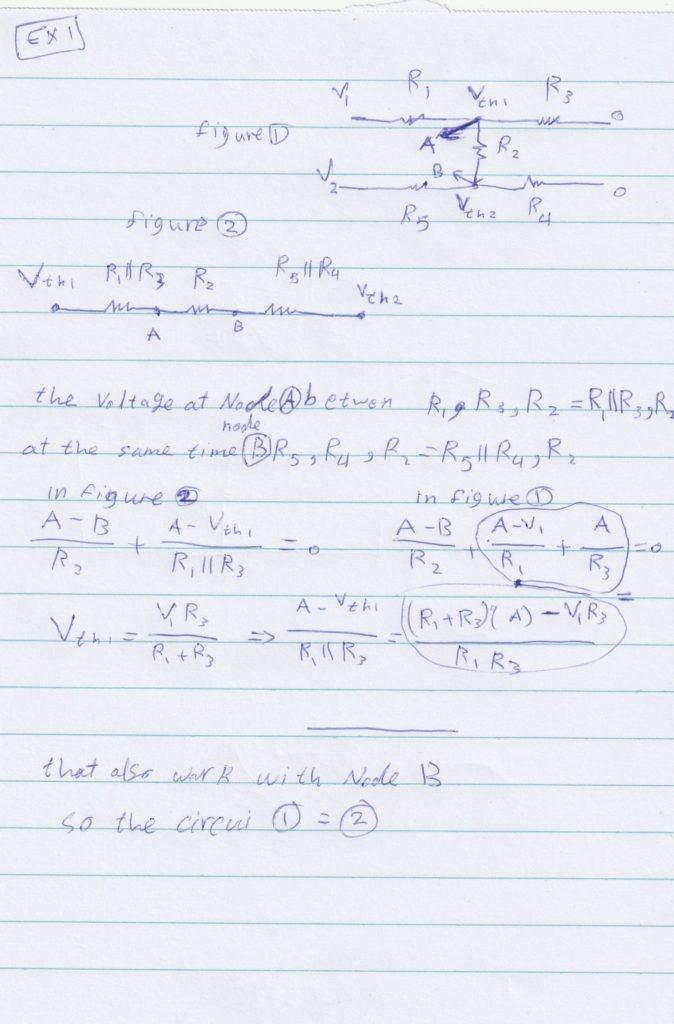 EX 1
V₁ R₁ Vth1 R₃ 0
figure ①
A R₂
B
V₂ R₅ Vth2 R₄ 0
figure ②
Vth1 R₁||R₃ R₂ R₅||R₄ Vth2
A B
the Voltage at Node Ⓐ betwen R₁, R₃, R₂ = R₁||R₃, R₂
at the same time node Ⓑ R₅, R₄, R₂ = R₅||R₄, R₂
in figure ② in figure ①
(A-B)/R₂ + (A-Vth1)/(R₁||R₃) = 0 (A-B)/R₂ + (A-V₁)/R₁ + A/R₃ = 0
=
Vth1 = V₁R₃/(R₁+R₃) => (A-Vth1)/(R₁||R₃) = ((R₁+R₃)(A) - V₁R₃)/(R₁R₃)
that also work with Node B
so the circui ① = ②